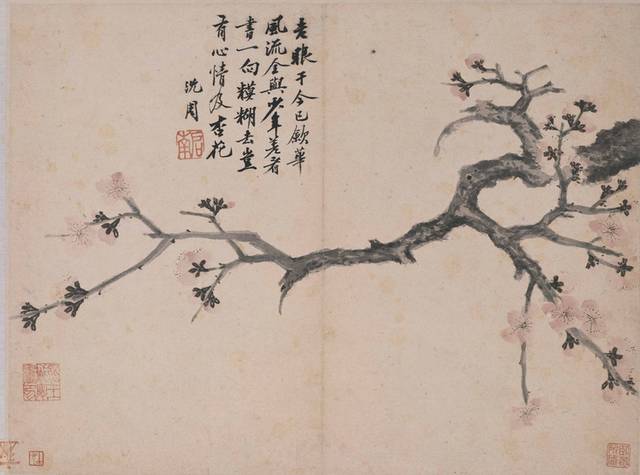 老眼于今已歛華
風流全與少年差看
書一向糢糊去豈
有心情及杏花
沈周